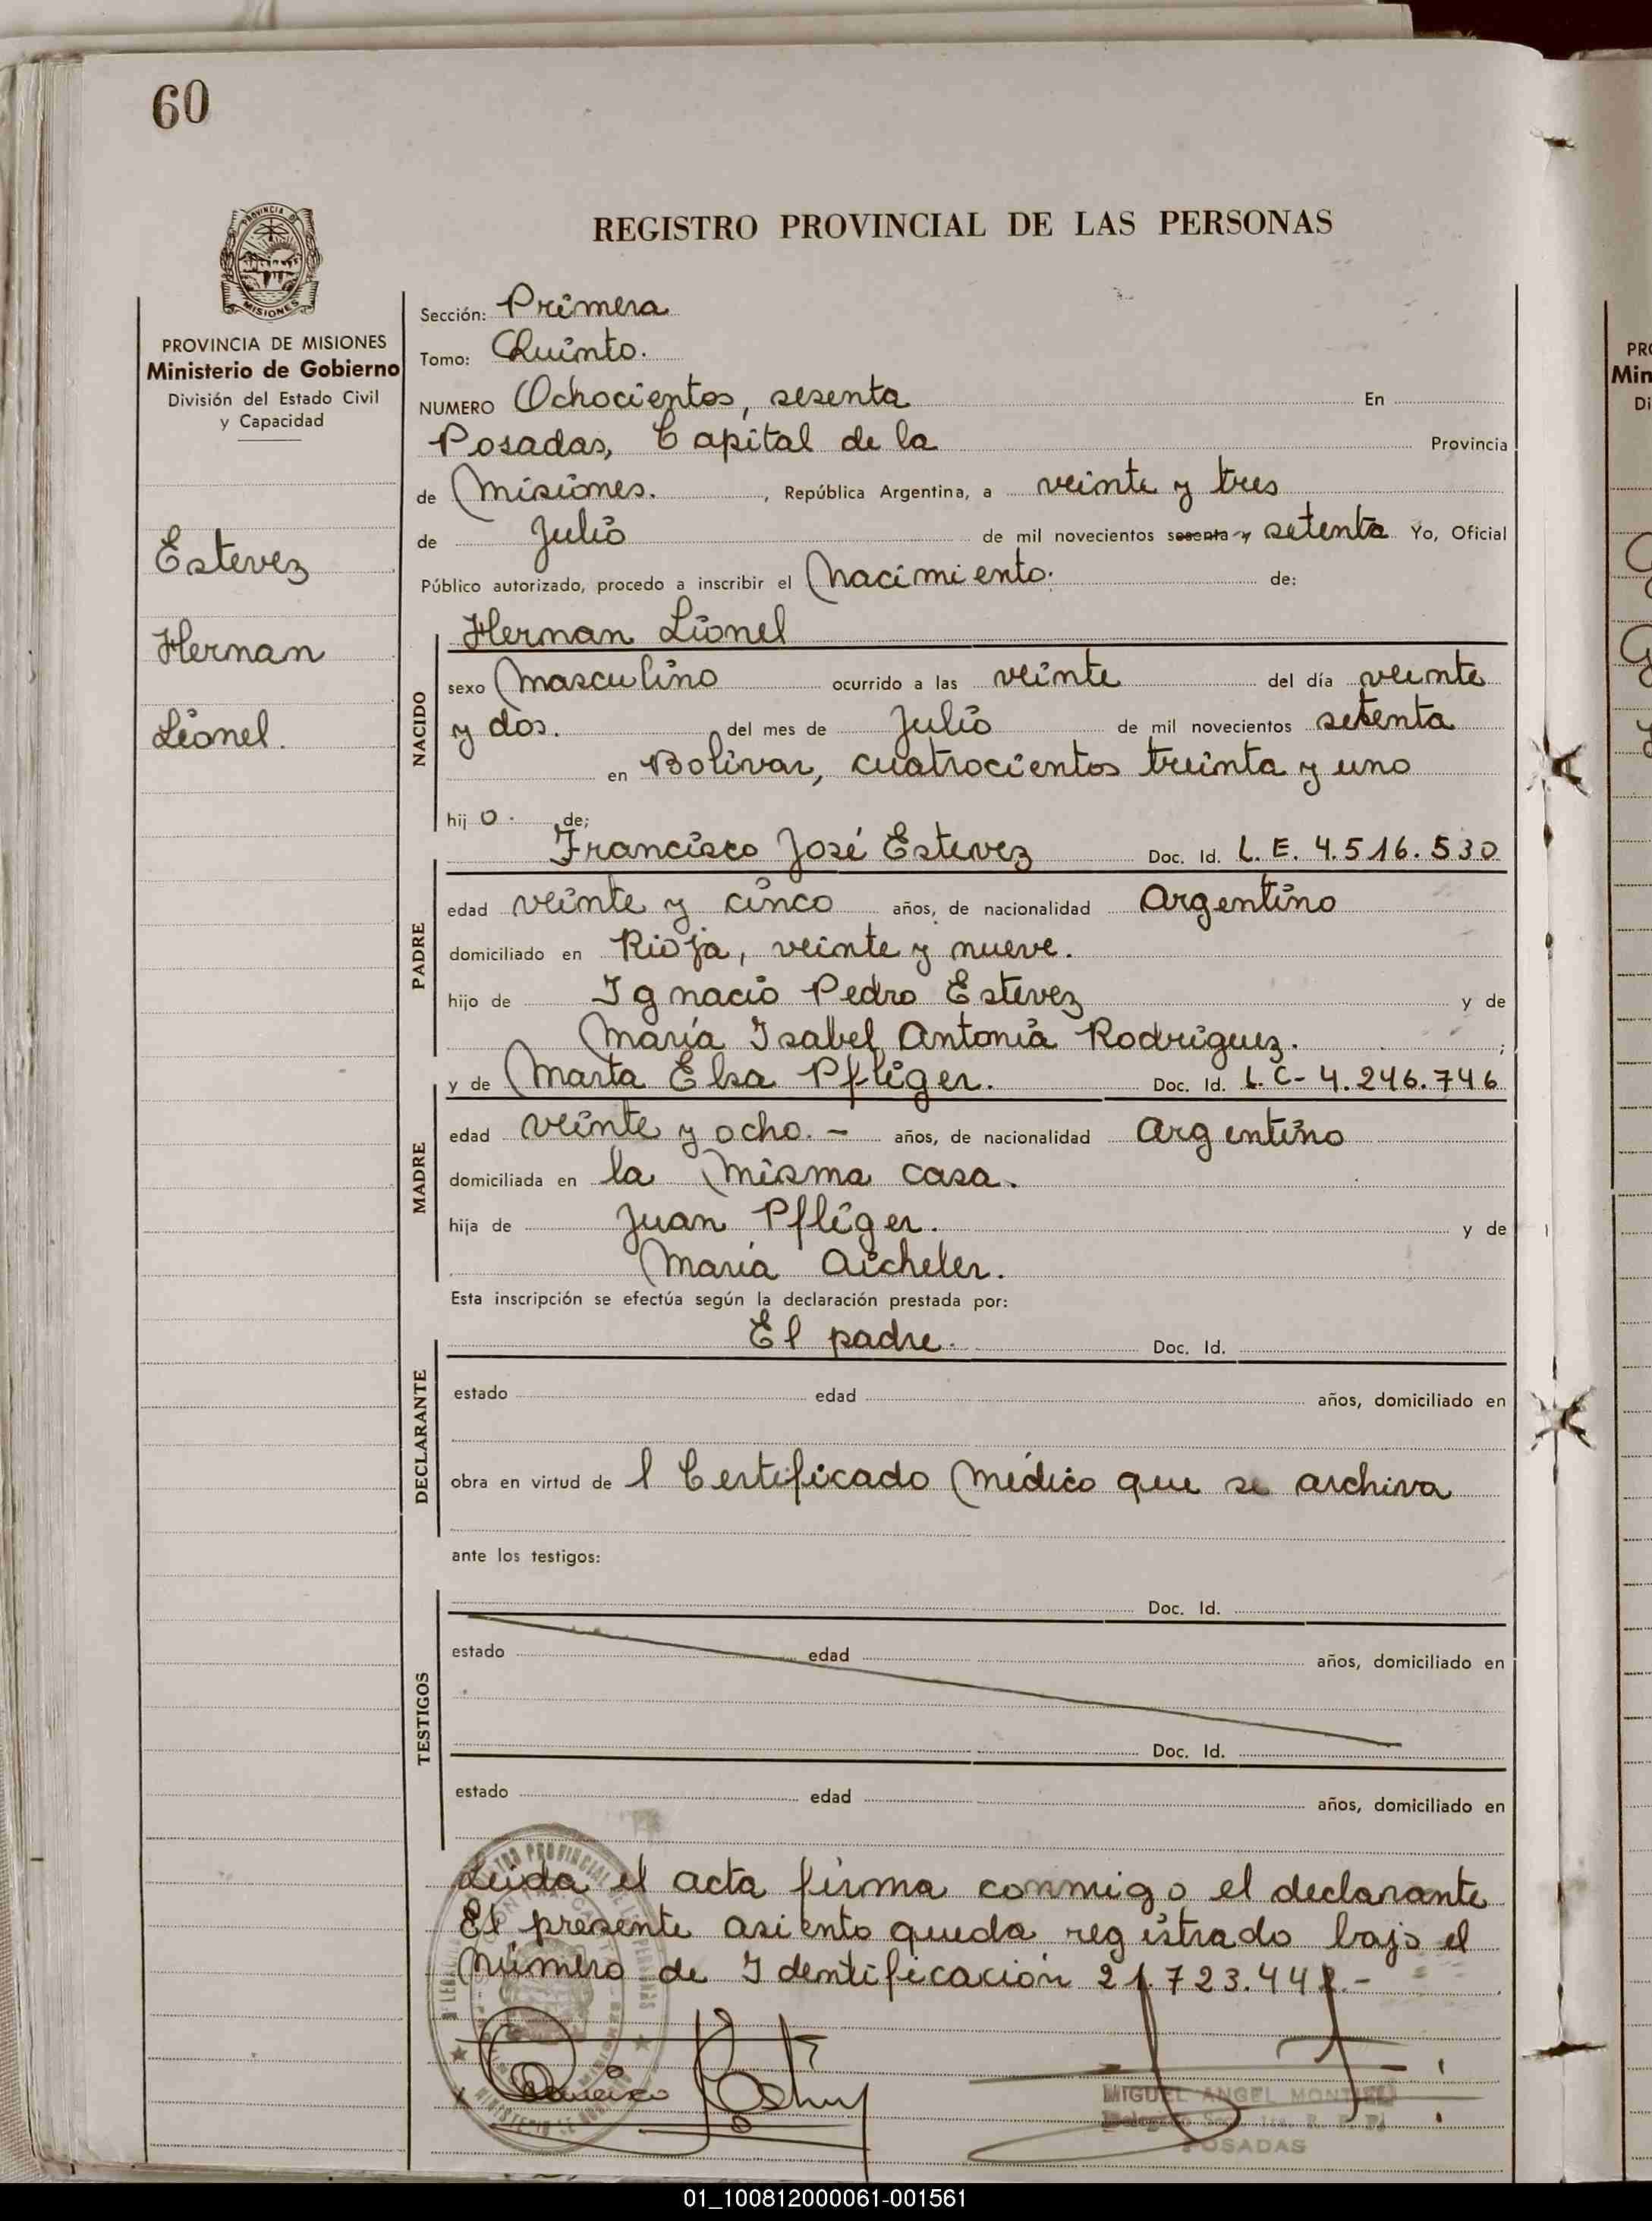 60
REGISTRO PROVINCIAL DE LAS PERSONAS
PROVINCIA DE
MISIONES
PROVINCIA DE MISIONES
Ministerio de Gobierno
División del Estado Civil
y Capacidad
Estevez
Hernan
Lionel.
Sección: Primera
Tomo: Quinto.
NUMERO Ochocientos, sesenta En
Posadas, Capital de la Provincia
de Misiones. , República Argentina, a veinte y tres
de Julio de mil novecientos sesenta y setenta Yo, Oficial
Público autorizado, procedo a inscribir el Nacimiento. de:
Hernan Lionel
NACIDO
sexo Masculino ocurrido a las veinte del día veinte
y dos. del mes de Julio de mil novecientos setenta
en Bolivar, cuatrocientos treinta y uno
hijo. de;
Francisco José Estevez Doc. Id. L. E. 4.516.530
PADRE
edad veinte y cinco años, de nacionalidad Argentino
domiciliado en Rioja, veinte y nueve.
hijo de Ignacio Pedro Estevez y de
María Isabel Antonia Rodriguez. ;
y de Marta Elsa Pfliger. Doc. Id. L.C- 4.246.746
MADRE
edad veinte y ocho. - años, de nacionalidad Argentino
domiciliada en la misma casa.
hija de Juan Pfliger. y de
María Aicheler.
Esta inscripción se efectúa según la declaración prestada por:
El padre. Doc. Id.
DECLARANTE
estado edad años, domiciliado en
obra en virtud de l Certificado Médico que se archiva
ante los testigos:
Doc. Id.
TESTIGOS
estado edad años, domiciliado en
Doc. Id.
estado edad años, domiciliado en
Leida el acta firma conmigo el declarante
El presente asiento queda registrado bajo el
Número de Identificación 21.723.448.-
Francisco
MIGUEL ANGEL MONTIEL
POSADAS
PRO
Min
Di
01_100812000061-001561